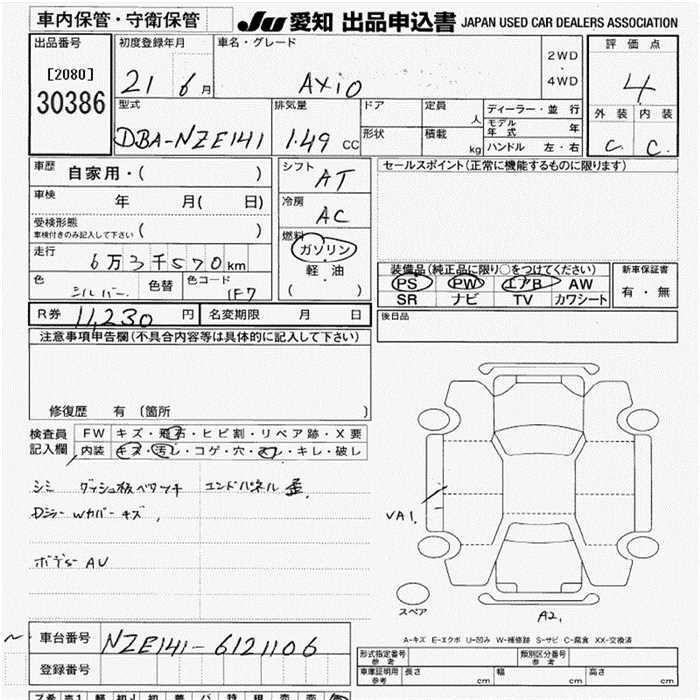 車内保管・守衛保管
JU 愛知 出品申込書 JAPAN USED CAR DEALERS ASSOCIATION
出品番号
[2080]
30386
初度登録年月
21 6月
車名・グレード
AXIO
2WD
・
4WD
評価点
4
外装 内装
C C.
型式
DBA-NZE141
排気量
1.49 CC
ドア
定員
人
形状
積載
kg
ディーラー・並行
モデル年式 年
ハンドル 左・右
車歴 自家用・( )
車検 年 月( 日)
受検形態
車検付きのみ記入して下さい ( )
走行 6万3千570km
色 シルバー 色替 色コード 1F7
シフト AT
冷房 AC
燃料
ガソリン
・
軽油
( )
セールスポイント(正常に機能するものに限ります)
装備品(純正品に限り○をつけてください)
PS PW エアB AW
SR ナビ TV カワシート
新車保証書
有・無
R券 11,230円 名変期限 月 日
後日品
注意事項申告欄(不具合内容等は具体的に記入して下さい)
修復歴 有 (箇所 )
検査員
記入欄
FW キズ・飛石・ヒビ割・リペア跡・X要
内装 キズ・汚レ・コゲ・穴・スレ・キレ・破レ
シミ ダッシュ板ベタツキ エンドパネル歪
Dミラー Wカバーキズ
AU
VA1.
スペア
A2,
A-キズ E-エクボ U-凹み W-補修跡 S-サビ C-腐食 XX-交換済
車台番号 NZE141-6121106
登録番号
形式指定番号
参考
類別区分番号
参考
車庫証明用
参考
長さ cm 幅 cm 高さ cm